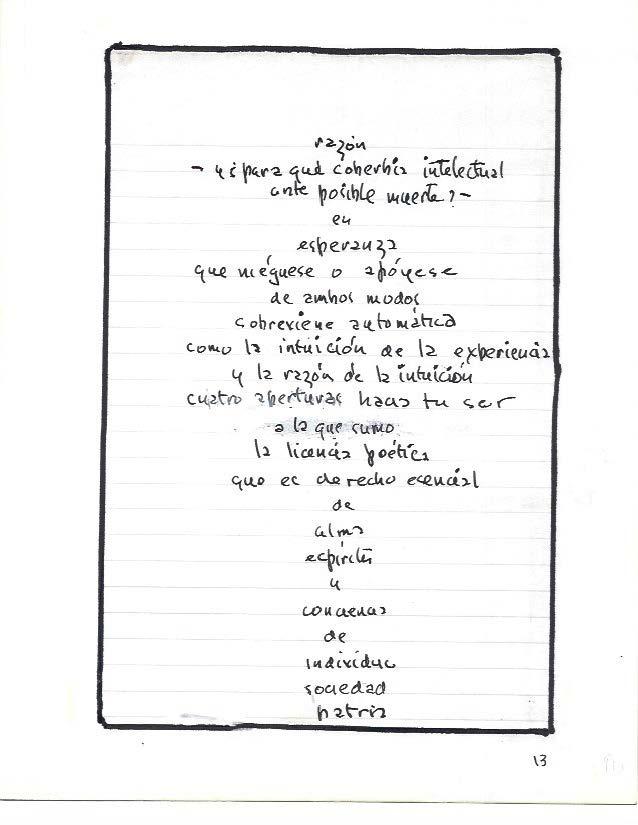 razón
- y ¿para qué soberbia intelectual
ante posible muerte? -
en
esperanza
que niéguese o apóyese
de ambos modos
sobreviene automática
como la intuición de la experiencia
y la razón de la intuición
cuatro aperturas hacia tu ser
a la que sumo
la licencia poética
que es derecho esencial
de
alma
espíritu
y
conciencia
de
individuo
sociedad
patria
13